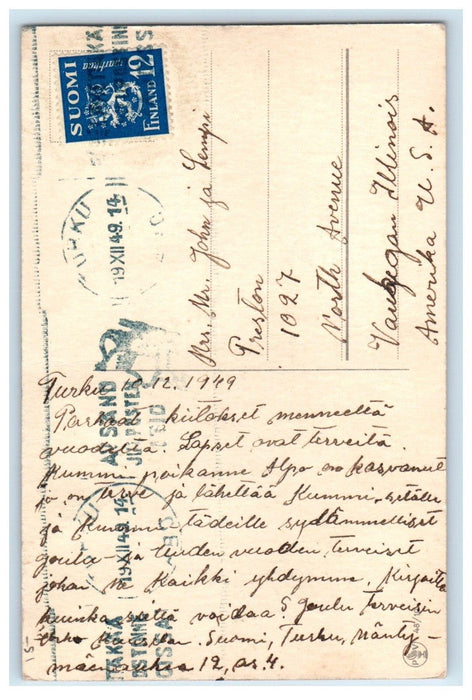 SUOMI
markkaa
FINLAND 12
TURKU
19.XII.49.14
ÅBO
Mrs. Mr. John ja Lempi
Preston
1027
North Avenue
Vaukegan Illinois
Amerika U. S. A.
Turku 10.12.1949
Parhaat kiitokset menneeltä
vuodelta. Lapset ovat terveitä.
Kummi poikanne Alpo on kasvanut
ja on terve ja lähettää Kummi-sedälle
ja Kummi tädeille sydämmelliset
joulu- ja uuden vuoden terveiset
johon me Kaikki yhdymme. Kirjoita
kuinka siellä voidaa
joulu terveisin
Suomi, Turku, Mänty-
12, as. 4.
AVSÄND
JULPOSTEN
I TID
TURKU
19.XII.49.14
ÅBO
15-